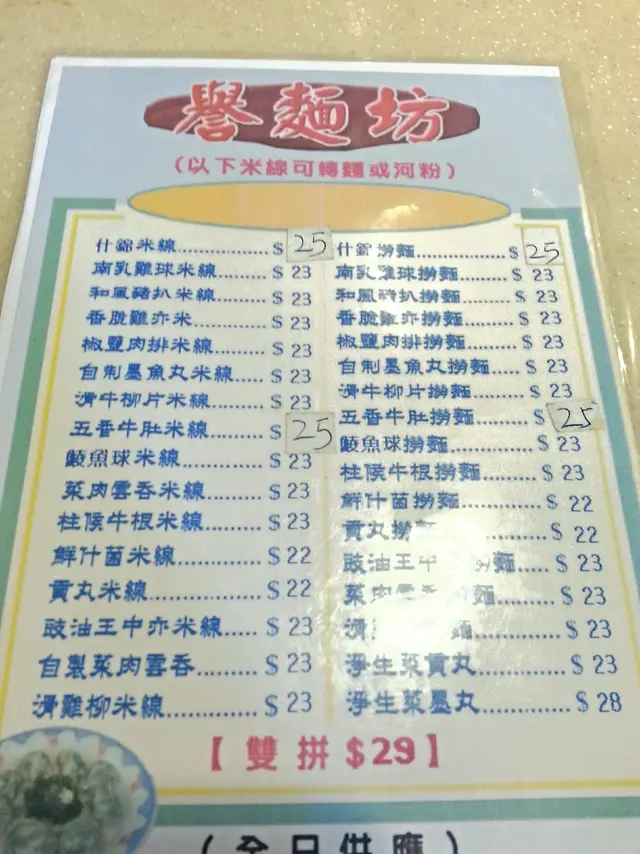 譽麵坊
(以下米線可轉麵或河粉)
什錦米線..................$ 25
南乳雞球米線..........$ 23
和風豬扒米線..........$ 23
香脆雞亦米..............$ 23
椒鹽肉排米線..........$ 23
自制墨魚丸米線.....$ 23
滑牛柳片米線..........$ 23
五香牛肚米線..........$ 25
鯪魚球米線..............$ 23
菜肉雲吞米線..........$ 23
柱候牛根米線..........$ 23
鮮什菌米線..............$ 22
貢丸米線..................$ 22
豉油王中亦米線.....$ 23
自製菜肉雲吞..........$ 23
滑雞柳米線..............$ 23
什錦撈麵..................$ 25
南乳雞球撈麵..........$ 23
和風豬扒撈麵..........$ 23
香脆雞亦撈麵..........$ 23
椒鹽肉排撈麵..........$ 23
自制墨魚丸撈麵.....$ 23
滑牛柳片撈麵..........$ 23
五香牛肚撈麵..........$ 25
鯪魚球撈麵..............$ 23
柱候牛根撈麵..........$ 23
鮮什菌撈麵..............$ 22
貢丸撈..............$ 22
豉油王中 撈麵.....$ 23
菜肉 麵..........$ 23
滑 麵..............$ 23
淨生菜貢丸..............$ 23
淨生菜墨丸..............$ 28
【雙拼$29】
(全日供應)